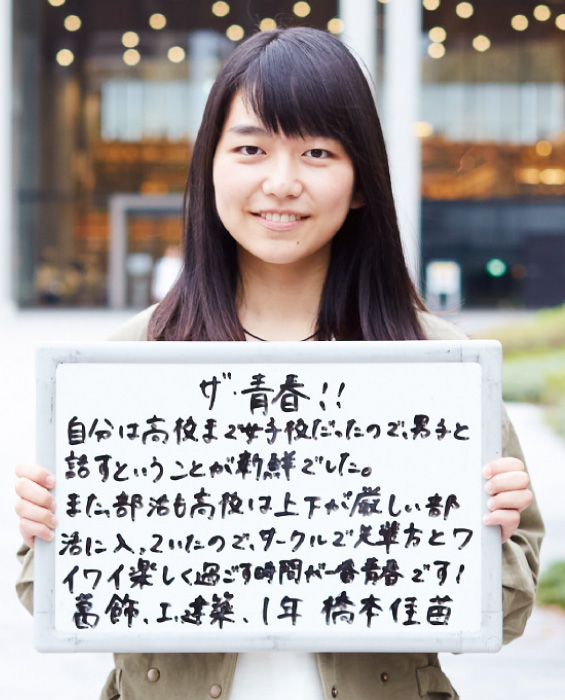 ザ・青春!!
自分は高校まで女子校だったので、男子と
話すということが新鮮でした。
また、部活も高校は上下が厳しい部
活に入っていたので、サークルで先輩方とワ
イワイ楽しく過ごす時間が一番青春です!
葛飾、工、建築、1年 橋本佳苗